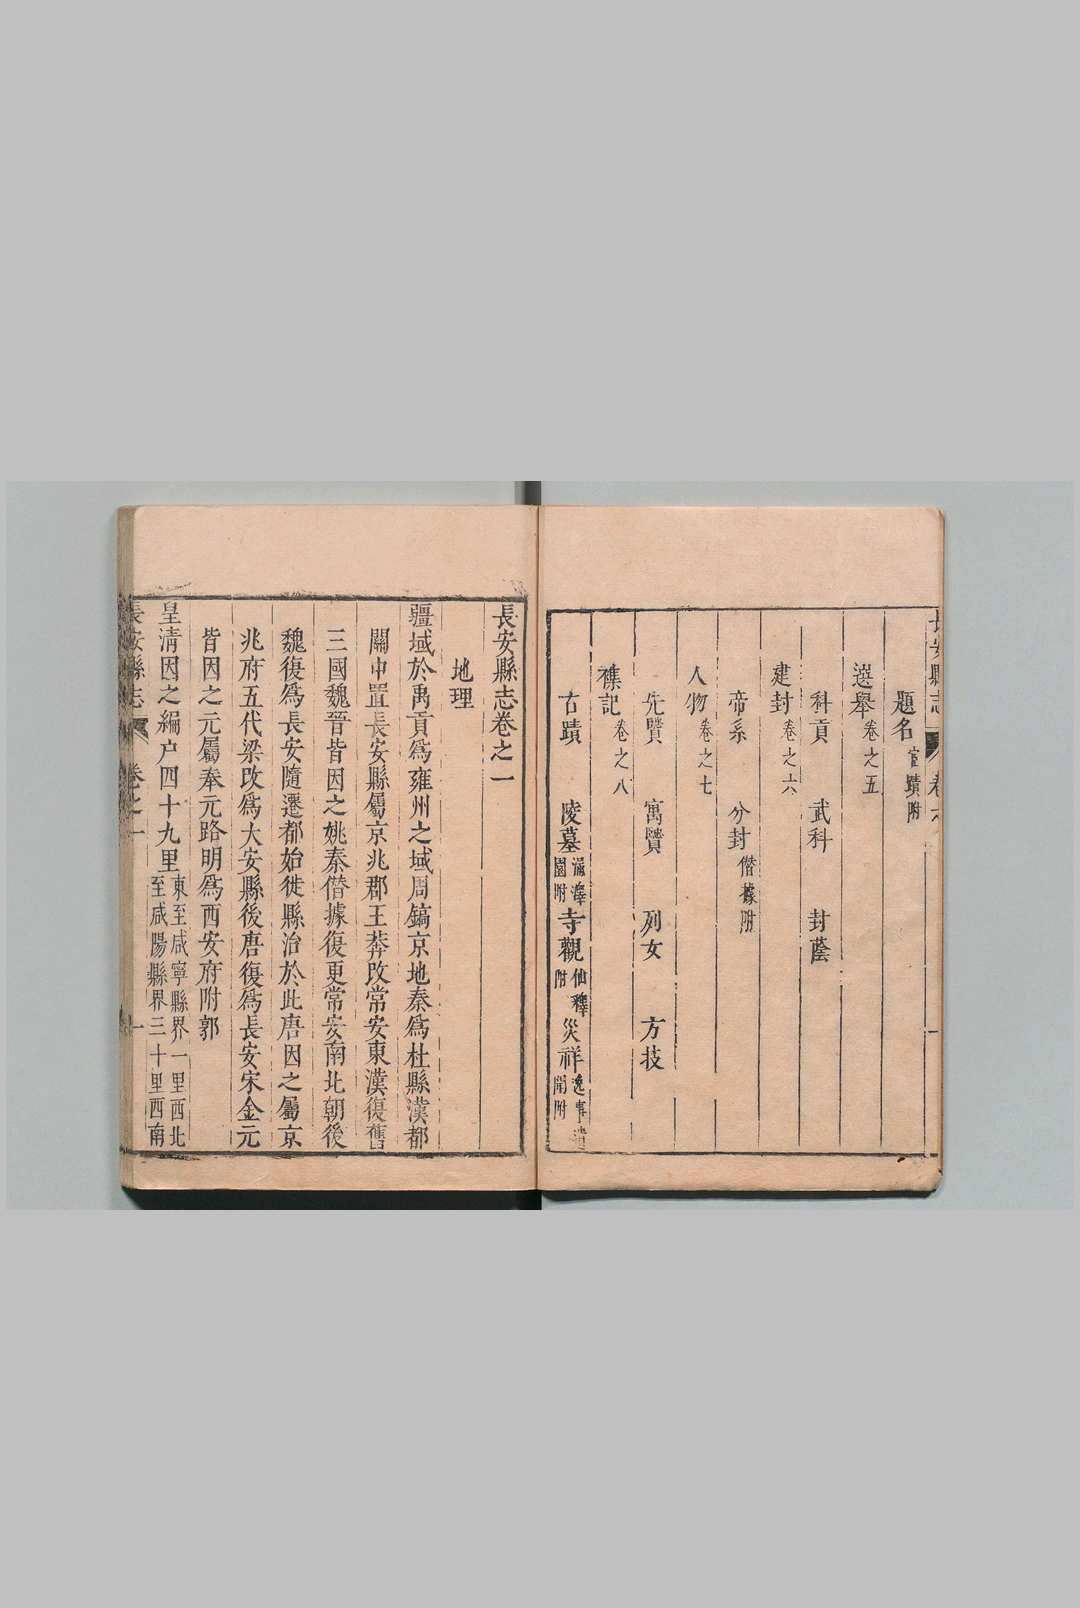 題名 宦蹟附
選舉 卷之五
科貢 武科 封蔭
建封 卷之六
帝系 分封 僭據附
人物 卷之七
先賢 寓賢 列女 方技
襍記 卷之八
古蹟 陵墓 園附 寺觀 仙釋附 災祥 逸事 附
長安縣志卷之一
地理
疆域於禹貢爲雍州之域周鎬京地秦爲杜縣漢都
關中置長安縣屬京兆郡王莽改常安東漢復舊
三國魏晉皆因之姚秦僭據復更常安南北朝後
魏復爲長安隨遷都始徙縣治於此唐因之屬京
兆府五代梁改爲大安縣後唐復爲長安宋金元
皆因之元屬奉元路明爲西安府附郭
皇清因之編户四十九里 東至咸寧縣界一里西北
至咸陽縣界三十里西南
長安縣志 卷之一 一